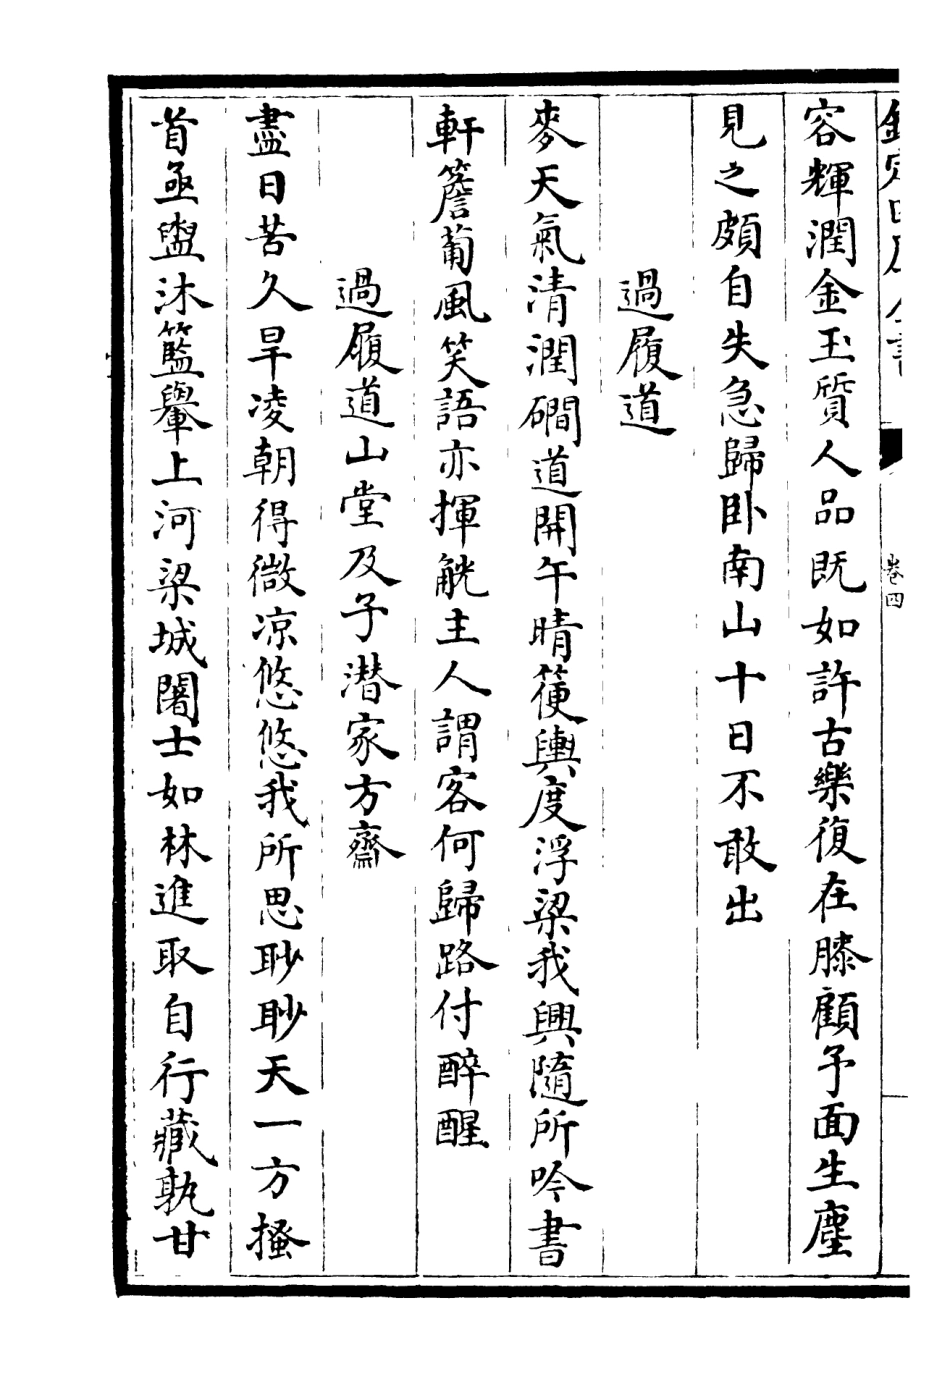 欽定四庫全書
卷四
容輝潤金玉質人品既如許古樂復在膝顧予面生塵
見之頗自失急歸卧南山十日不敢出
過履道
麥天氣清潤磵道開午晴箯輿度浮梁我興隨所吟書
軒簷蔔風笑語亦揮觥主人謂客何歸路付醉醒
過履道山堂及子潛家方齋
盡日苦久旱凌朝得微凉悠悠我所思眇眇天一方搔
首亟盥沐籃轝上河梁城闍士如林進取自行藏孰甘